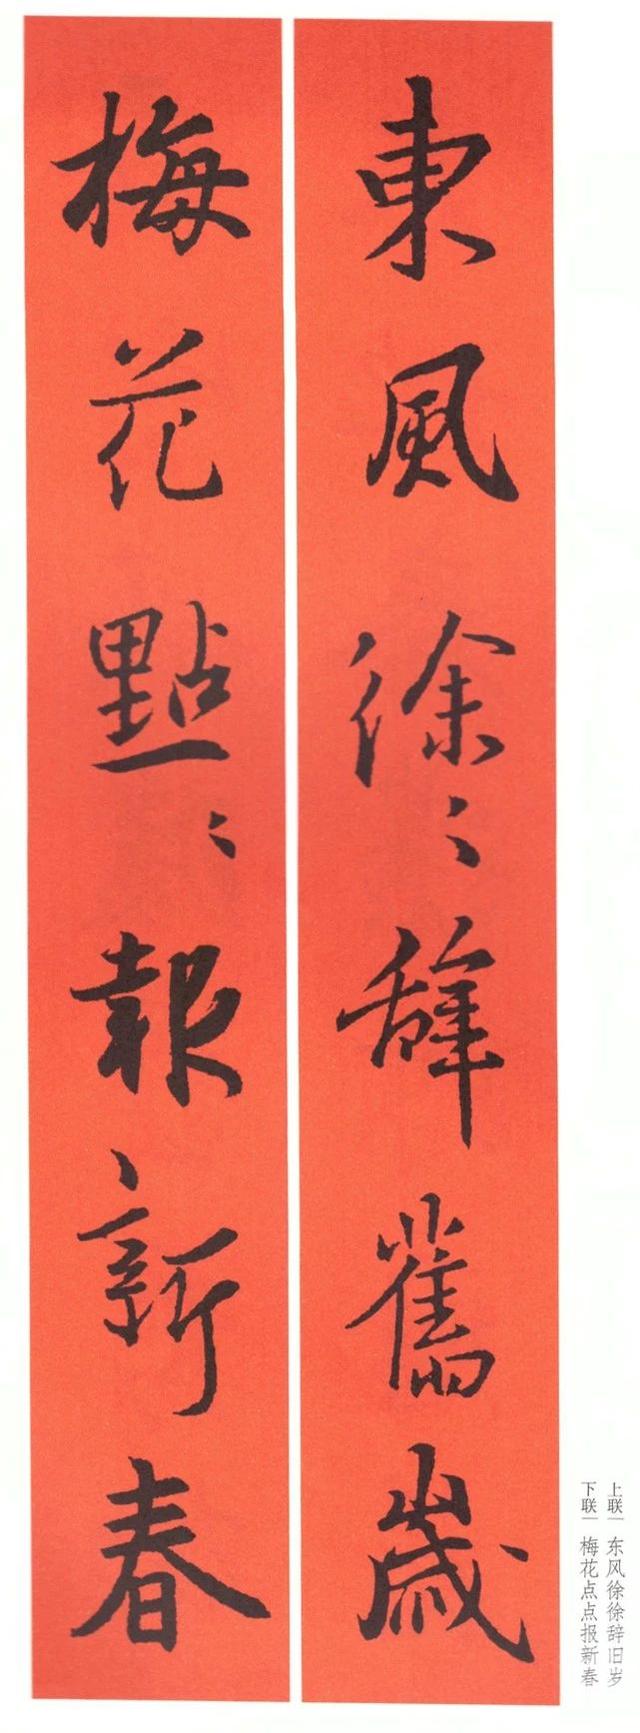 東風徐〻辭舊歲
梅花點〻報新春
上联｜东风徐徐辞旧岁
下联｜梅花点点报新春